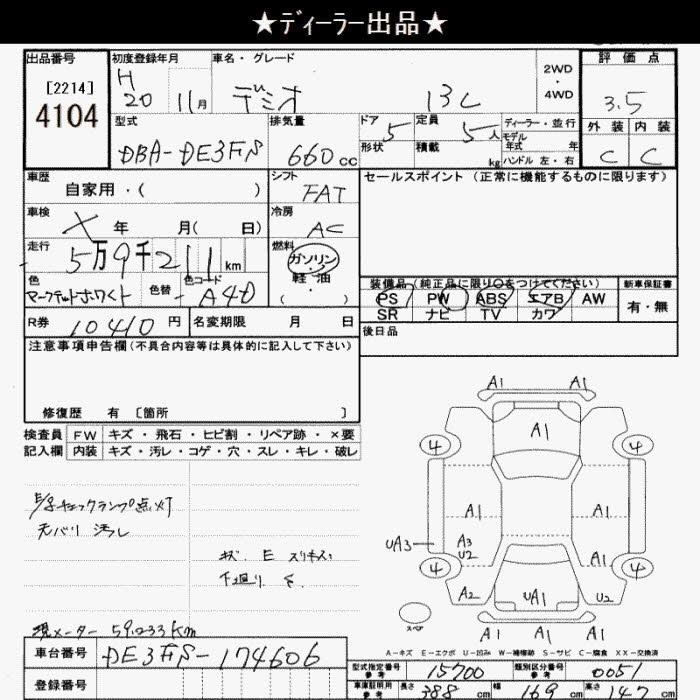 ★ディーラー出品★
出品番号 初度登録年月 車名・グレード 2WD・4WD 評価点
[2214] 4104 H20 11月 デミオ 13C 3.5
型式 排気量 ドア 5 定員 5人 ディーラー・並行 外装 内装
DBA-DE3FS 660cc 形状 積載 kg モデル年式 年 ハンドル 左・右 C C
車歴 自家用・( ) シフト FAT セールスポイント(正常に機能するものに限ります)
車検 × 年 月( 日) 冷房 AC
走行 5万9千211km 燃料 ガソリン・軽油・( )
色 色替 色コード A4D
装備品(純正品に限り○をつけてください) 新車保証書
PS PW ABS エアB AW 有・無
SR ナビ TV カワ
R券 10410円 名変期限 月 日 後日品
注意事項申告欄(不具合内容等は具体的に記入して下さい)
修復歴 有 [箇所 ]
検査員 FW キズ・飛石・ヒビ割・リペア跡・×要
記入欄 内装 キズ・汚レ・コゲ・穴・スレ・キレ・破レ
E/gチェックランプ点灯
天バリ 汚レ
キズ E スリキズ
下廻り S
現メーター 59,233Km
A1 A1
A1
4 4
A1 A1
UA3 A3 U2 A1
4 4
A2 UA1 U2
スペア
A1 A1 A1
A-キズ E-エクボ U-凹み W-補修跡 S-サビ C-腐食 XX-交換済
車台番号 DE3FS-174606
登録番号
型式指定番号 参考 15700 類別区分番号 参考 0051
車庫証明用 参考 長さ 388cm 幅 169cm 高さ 147cm